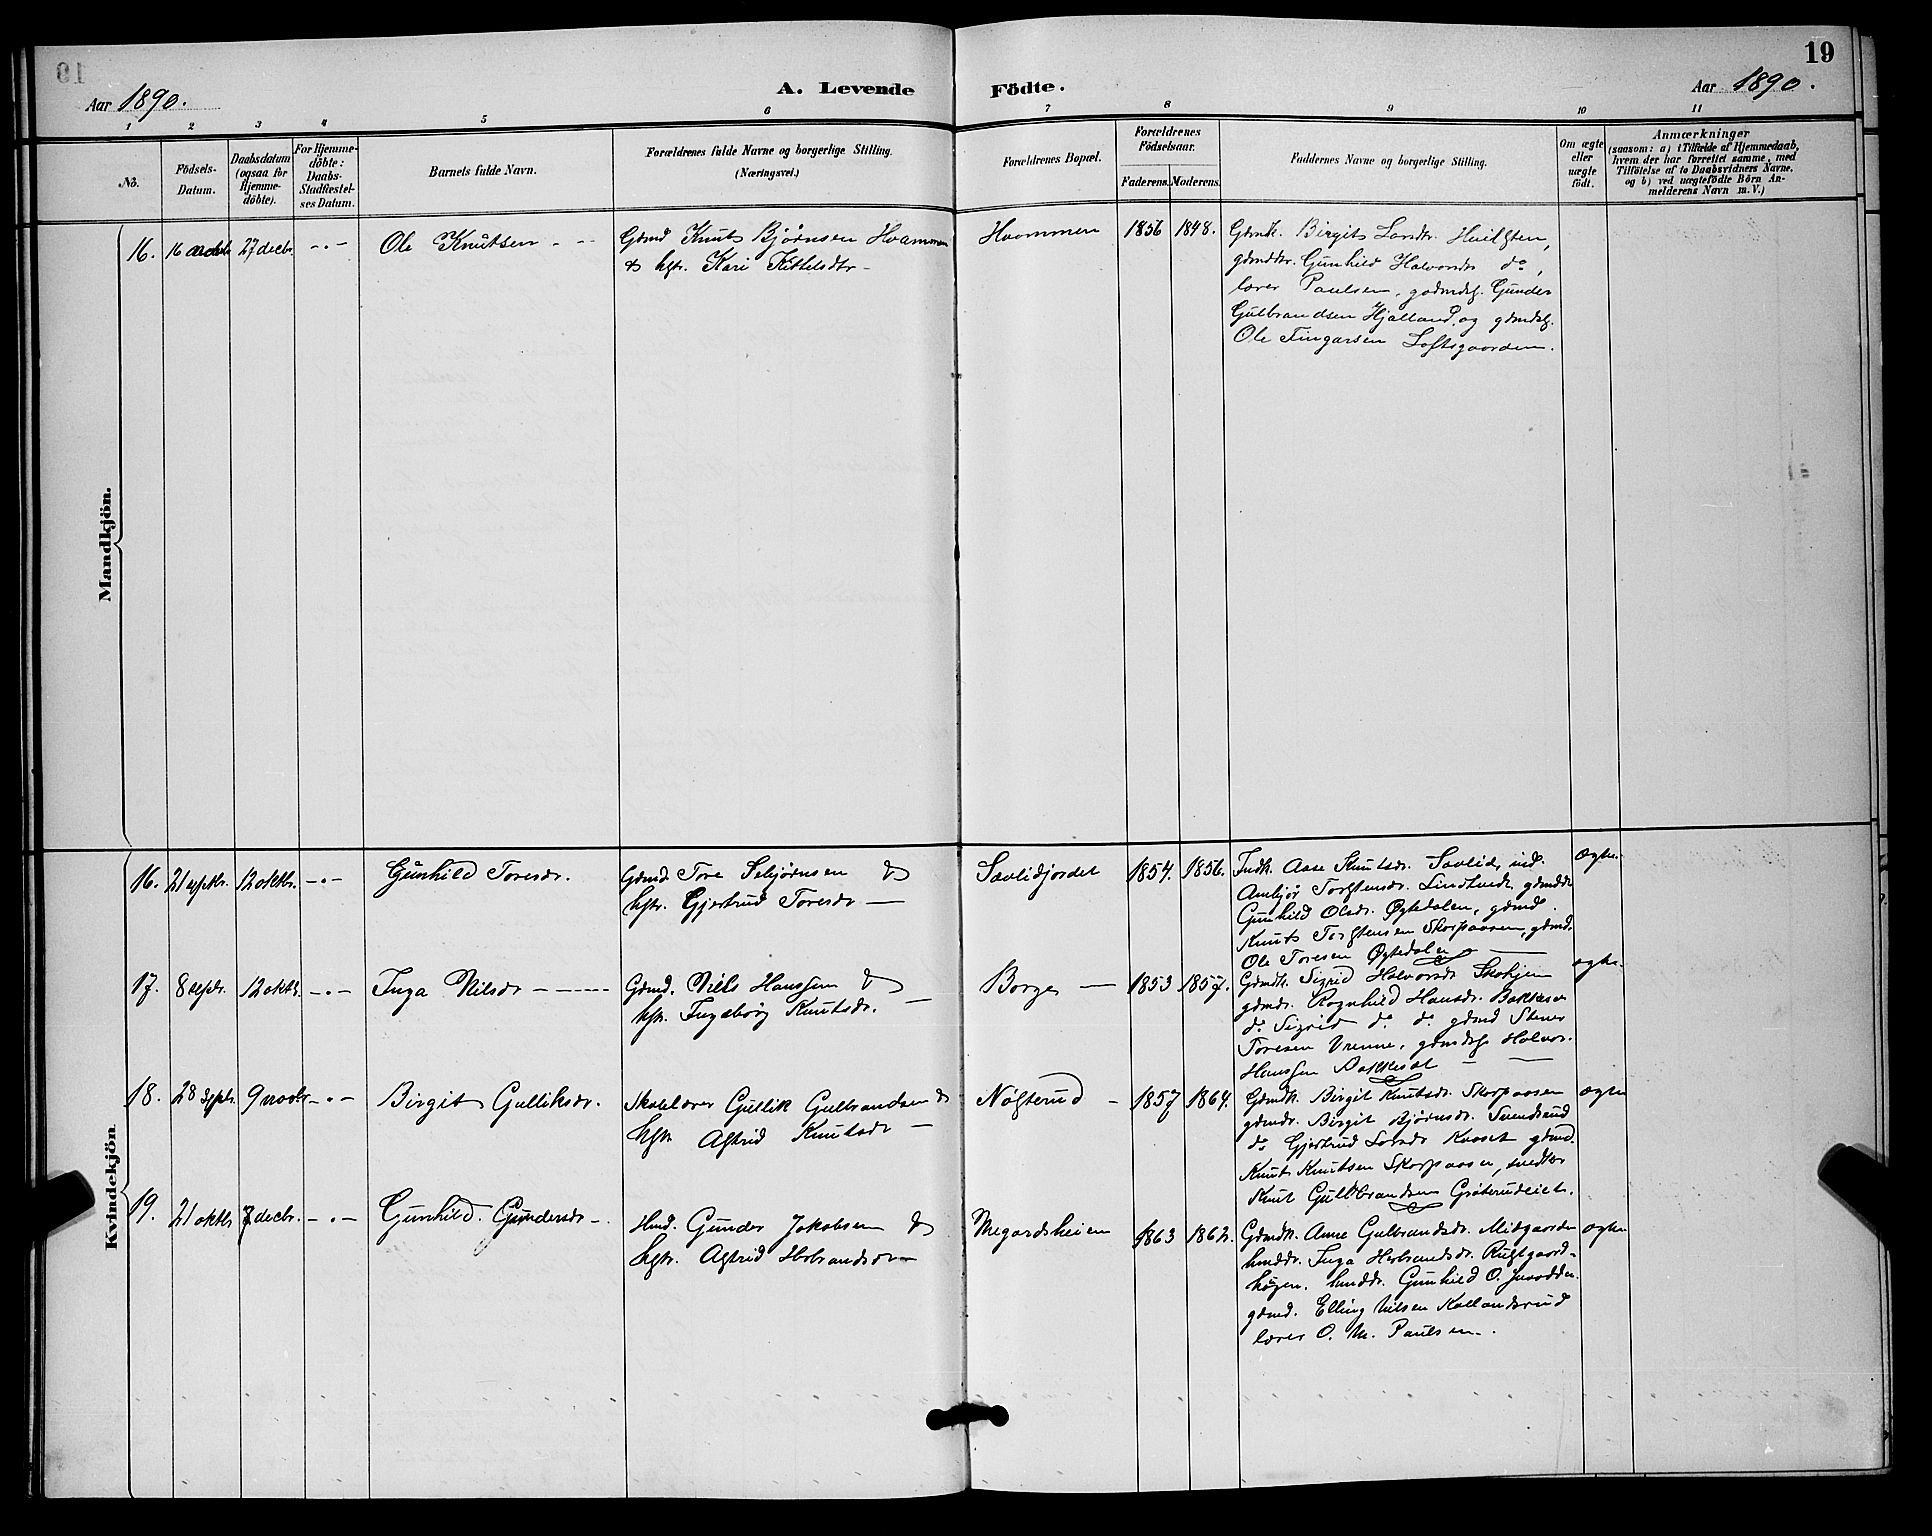 19
Aar 1890.
A. Levende Födte.
Aar 1890.
1 2 3 4 5 6 7 8 9 10 11
No.
Födsels-Datum.
Daabsdatum (ogsaa for Hjemme-döbte).
For Hjemme-döbte: Daabs-Stadfæstel-ses Datum.
Barnets fulde Navn.
Forældrenes fulde Navne og borgerlige Stilling.
(Næringsvei.)
Forældrenes Bopæl.
Forældrenes Födselsaar.
Faderens. Moderens.
Faddernes Navne og borgerlige Stilling.
Om ægte eller uægte födt.
Anmærkninger
(saasom: a) i Tilfælde af Hjemmedaab, hvem der har forrettet samme, med Tilföielse af to Daabsvidners Navne, og b) ved uægtefödte Börn Anmelderens Navn m. V.)
Mandkjön.
16. 16 27 decbr. -"- Ole Knutsen
Gdmd Knut Bjørnsen Hvammen
& hstr. Kari Kittelsdtr
Hvammen 1856 1848.
Gdmdk. Birgit Larsdr. Hvilsten,
gdmddtr. Gunhild Halvorsdr do,
lærer Paulsen, gdmds. Gunder
Gulbrandsen Hjalland, og gdmds.
Ole Fingarsen Loftsgaarden.
Kvindekjön.
16. 21 septbr. 12 oktbr. -"- Gunhild Toresdr.
Gdmd. Tore Sebjørnsen &
hstr. Gjertrud Toresdr
Savlidjordet 1854. 1856.
Indk. Aase Knutsdr. Savlid, ind.
Ambjør Torstensdr. Lindtvedt, gdmddtr
Gunhild Olsdr. Øytedalen, gdmd.
Knut Torstensen Skorpaasen, gdmd.
Ole Toresen Øytedalen
ægte.
17. 8 septr. 12 oktb. -"- Inga Nilsdr
Gdmd. Nils Hanssen &
hstr. Ingeborg Knutsdr.
Borge 1853 1857.
Gdmdk. Sigrid Halvorsdr Skohjem
gdmdr. Ragnhild Hansdr. Bakkesa
do Sigrid do do gdmd Stener
Toresen Vrenne, gdmds Halvor
Hanssen Bakkesat
ægte.
18. 28 septr. 9 novbr -"- Birgit Gulliksdr.
Skolelærer Gullik Gulbrandsen &
hstr Astrid Knutsdr
Nøsterud 1857 1864.
Gdmdk. Birgit Knutsdr. Skorpaasen
gdmdr. Birgit Bjørnsdr. Svendsrud
do Gjertrud Larsdr Kaaset gdmd.
Knut Knutsen Skorpaasen, snedker
Knut Gulbrandsen Gröterudeiet.
ægte
19. 21 oktbr 7 decbr. -"- Gunhild. Gundersdr
Hmd. Gunder Jakobsen &
hstr. Astrid Herbrandsdr
Megardsheien 1863 1862.
Gdmdk. Anne Gulbrandsdr. Midgaarden
hmddr. Inga Herbrandsdr. Rustgaard-
högen. hmddr. Gunhild O. Juvodden.
gdmd. Elling Nilsen Kollandsrud
lærer O. M. Paulsen.
ægte